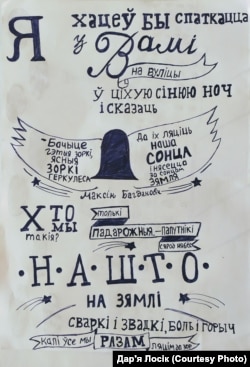 Я хацеў бы спаткацца
з Вамі
на вуліцы
ў ціхую сінюю ноч
і сказаць
- Бачыце
гэтыя зоркі,
ясныя
зоркі
Геркулеса
Да іх ляціць
наша
сонца
і нясецца
за сонцам
зямля
Максім Багдановіч
Хто мы
такія?
толькі
падарожныя - папутнікі
сярод нябёс
НАШТО
на зямлі
сваркі і звадкі, боль і горыч
калі ўсе мы
разам
ляцім да зор
Дар'я Лосік (Courtesy Photo)